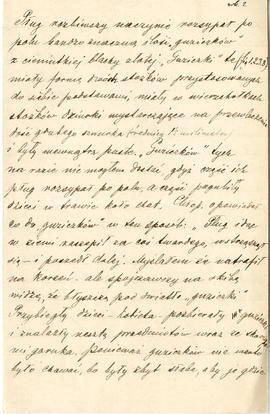 № 2
Pług rozbiwszy naczynie rozsypał po
polu bardzo znaczną ilość „guziczków"
z cieniutkiej blaszki złotej. „Guziczki" te
miały formę dwóch stożków przystosowanych
do siebie podstawami, miały w wierzchołkach
stożków dziurki wystarczające na przewleczenie
dość grubego sznurka
i były wewnątrz puste. „Guziczków" tych
na razie nie mogłem dostać, gdyż część ich
pług rozsypał po polu, a część pogubiły
dzieci w trawie koło chat. Chłop opowiadał
co do „guziczków" w ten sposób: „Pług idąc
w ziemi zaczepił za coś twardego,
się – i poszedł dalej. Myślałem że natrafił
na korzeń – ale spojrzawszy na skibę
widzę, że błyszczą pod światło „guziczki".
Przybiegły dzieci – kobieta pozbierały guziczki
i znalazły resztę przedmiotów wraz ze skorupa-
mi garnka. Ponieważ guziczków nie warto
było chować, bo były zbyt słabe, aby je gdzie